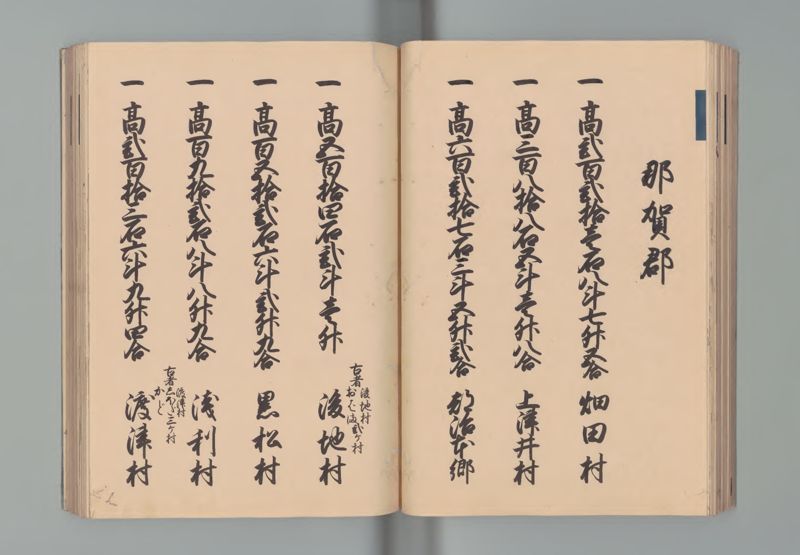 那賀郡
一 高弐百弐拾壱石八斗七升五合 畑田村
一 高三百八拾八石五斗壱升八合 上津井村
一 高六百弐拾七石三斗五升弐合 都治本郷
一 高五百拾四石弐斗壱升 後地村
古者 後地村
一 高百五拾弐石六斗弐升九合 黒松村
一 高百九拾弐石八斗八升九合 浅利村
古者 渡津村
一 高弐百拾三石六斗九升四合 渡津村